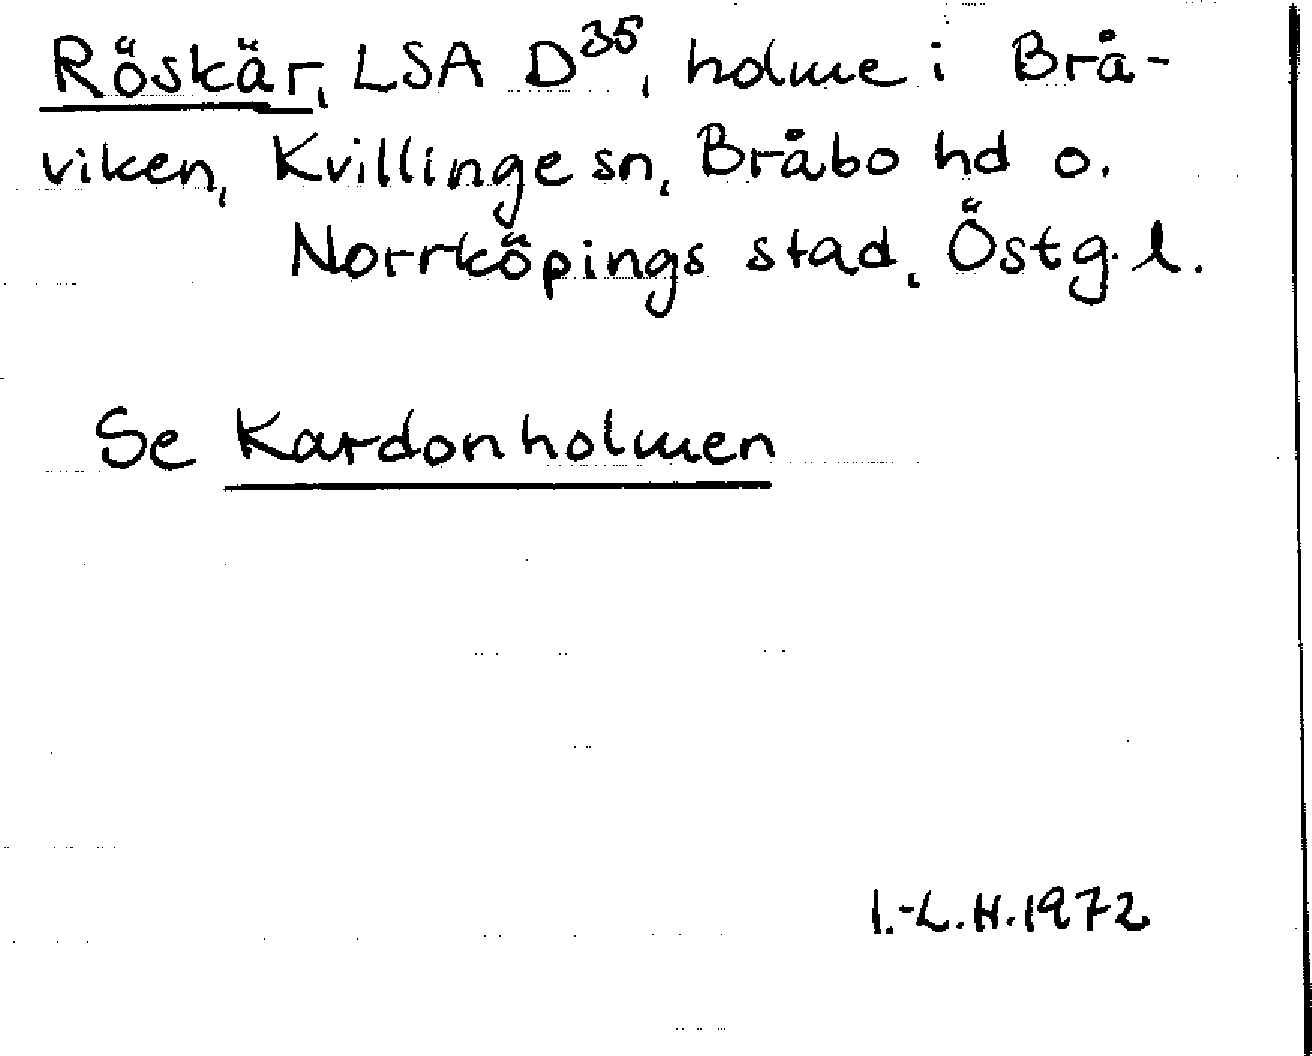 Röskär, LSA D³⁵, holme i Brå-
viken, Kvillinge sn, Bråbo hd o.
Norrköpings stad, Östg. l.
Se Kardonholmen
I.-L.H.1972